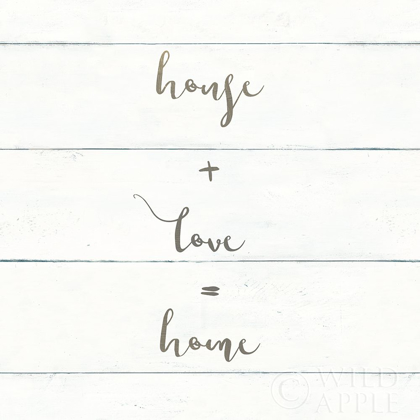 house
+
love
=
home
© WILD
APPLE